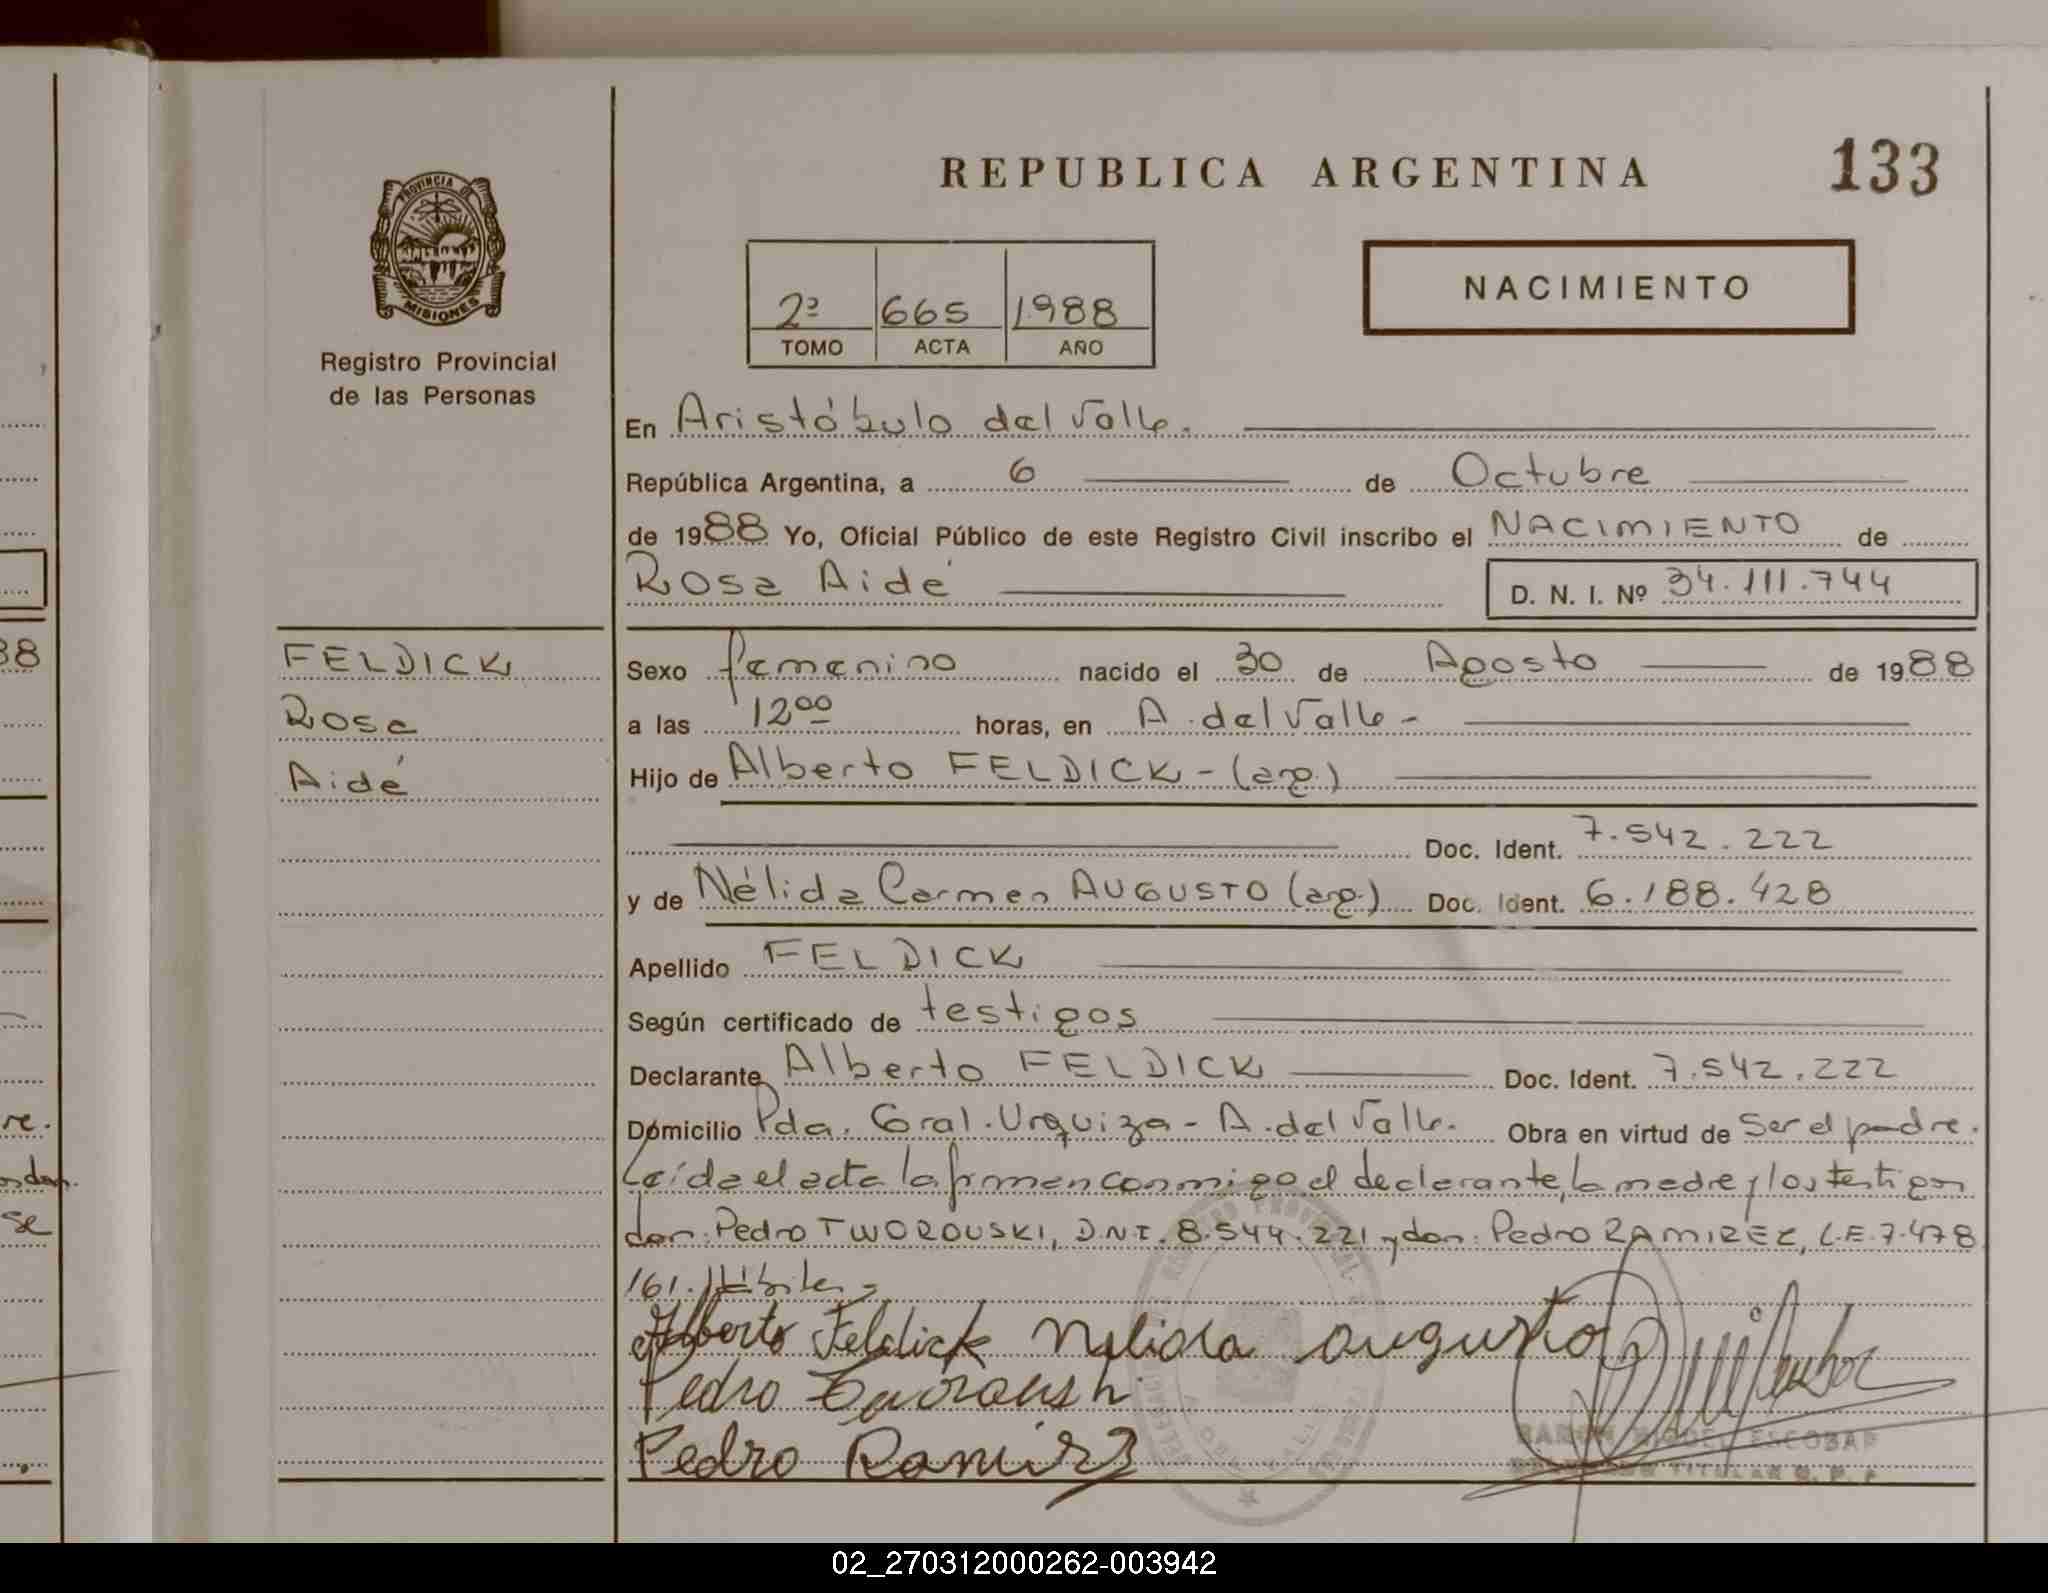 REPUBLICA ARGENTINA
133
PROVINCIA DE
MISIONES
Registro Provincial
de las Personas
2ª 665 1988
TOMO ACTA AÑO
NACIMIENTO
En Aristóbulo del Valle.
República Argentina, a 6 de Octubre
de 1988 Yo, Oficial Público de este Registro Civil inscribo el NACIMIENTO de
Rosa Aidé D. N. I. Nº 34.111.744
FELDICK
Rosa
Aidé
Sexo femenino nacido el 30 de Agosto de 1988
a las 12 00 horas, en A. del Valle -
Hijo de Alberto FELDICK - (arg.)
Doc. Ident. 7.542.222
y de Nélida Carmen AUGUSTO (arg.) Doc. Ident. 6.188.428
Apellido FELDICK
Según certificado de testigos
Declarante Alberto FELDICK Doc. Ident. 7.542.222
Domicilio Pda. Gral. Urquiza - A. del Valle. Obra en virtud de ser el padre.
Leída el acta la firman conmigo el declarante, la madre y los testigos
don: Pedro TWOROUSKI, D.N.I. 8.544.221 y don: Pedro RAMIREZ, L.E. 7.478
161. Hábiles =
Alberto Feldick Nelida augusto
Pedro
Pedro Ramirez
RAMON MIGUEL ESCOBAR
TITULAR
38
re.
se
02_270312000262-003942